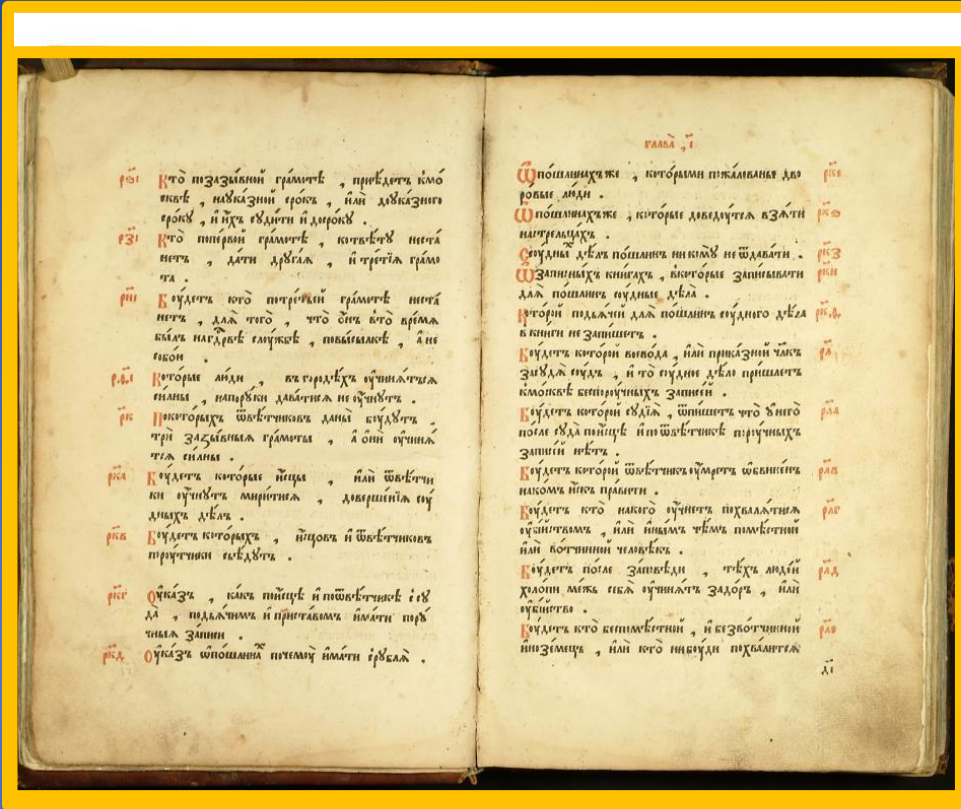 рѕ҃і Кто̀ позазы́вной гра́мотѣ , приѣ́детъ кмо́
сквѣ̀ , науказно́й сро́къ , и҆лѝ доука́зного
сро́ку , и҆ и҆́хъ суди́ти и҆ досро́ку .
рз҃і Кто̀ попе́рвой гра́мотѣ , котвѣ́ту неста́
нетъ , да́ти друга́я , и҆ тре́тїѧ гра́мо
та .
ри҃і Бꙋ́детъ кто̀ потре́тьей гра́мотѣ неста́
нетъ , длѧ̀ того̀ , что̀ ѻ҆́нъ вто̀ вре́мѧ
бы́лъ нагдⷭ҇рвѣ слꙋ́жбѣ , повы́сылкѣ , а҆ не
собо́и .
рѳ҃і Кото́рые лю́ди , въ городѣ́хъ ᲂу҆чинѧ́тъсѧ
си́лны , напору́ки дава́тисѧ не ᲂу҆чнꙋ́тъ .
рк҃ Покото́рыхъ ѿвѣ́тчиковъ даны̀ бꙋ́дꙋтъ ,
трѝ зазы́вныѧ гра́моты , а҆ ѻ҆нѝ ᲂу҆чинѧ́
тсѧ си́лны .
рк҃а Бꙋ́детъ кото́рые и҆сцы̀ , и҆лѝ ѿвѣ́тчи
ки ᲂу҆чнꙋ́тъ мири́тисѧ , доверше́нїѧ сꙋ́
дныхъ дѣ́лъ .
рк҃в Бꙋ́детъ кото́рыхъ , и҆сцо́въ и҆ ѿвѣ́тчиковъ
порꙋ́тчики свѣ́дꙋтъ .
рк҃г Оу҆ка́зъ , ка́къ пои҆сцѣ̀ и҆ поѿвѣ́тчикѣ ссꙋ
да̀ , подья́чимъ и҆ при́ставомъ и҆ма́ти порꙋ́
чныѧ за́писи .
рк҃д Оу҆ка́зъ ѡ҆по́шлинаⷯ почемꙋ̀ и҆ма́ти срꙋблѧ̀ .
глава̀ , і҃
Ѡ҆по́шлинахъ же , кото́рыми пожа́лованы дво
ровые лю́ди . рк҃е
Ѡ҆по́шлинахъже , кото́рые доведꙋ́тсѧ взѧ́ти
настрельца́хъ . рк҃ѕ
Ссꙋ́дныⷯ дѣ́лъ по́шлинъ никомꙋ̀ не ѿдава́ти . рк҃з
Ѡ҆запи́сныхъ кни́гахъ , вкото́рые запи́сывати
длѧ̀ по́шлинъ сꙋ́дные дѣла̀ . рк҃и
Кото́рой подья́чей длѧ̀ по́шлинъ сꙋ́дного дѣ́ла
в кни́ги не запи́шетъ . рк҃ѳ
Бꙋ́детъ кото́рой воево́да , и҆лѝ прика́зной чл҃къ
засꙋдѧ̀ сꙋ́дъ , и҆ то̀ сꙋ́дное дѣ́ло пришле́тъ
кмо́сквѣ беспорꙋ́чныхъ за́писей . рл҃
Бꙋ́детъ кото́рой сꙋдїѧ̀ , ѿпи́шетъ что̀ ᲂу҆ него̀
после сꙋда̀ пои҆сцѣ̀ и҆ поѿвѣ́тчикѣ порꙋ́чныхъ
за́писей нѣ́тъ . рл҃а
Бꙋ́детъ кото́рой ѿвѣ́тчикъ ᲂу҆́мретъ ѡ҆бвине́нъ
на ко́мъ и҆́скъ пра́вити . рл҃в
Бꙋ́детъ кто̀ накого̀ ᲂу҆чне́тъ похвалѧ́тисѧ
ᲂу҆бі́йствомъ , и҆лѝ и҆ны́мъ чѣ́мъ помѣ́стной
и҆лѝ во́тчинной человѣ́къ . рл҃г
Бꙋ́детъ по́сле за́повѣди , тѣ́хъ люде́й
холо́пи ме́жъ себѧ̀ ᲂу҆чинѧ́тъ задо́ръ , и҆лѝ
ᲂу҆бі́йство . рл҃д
Бꙋ́детъ кто̀ беспомѣ́стной , и҆ безво́тчинной
и҆ноземе́цъ , и҆лѝ кто̀ нибꙋди похвали́тсѧ рл҃е
д҃і